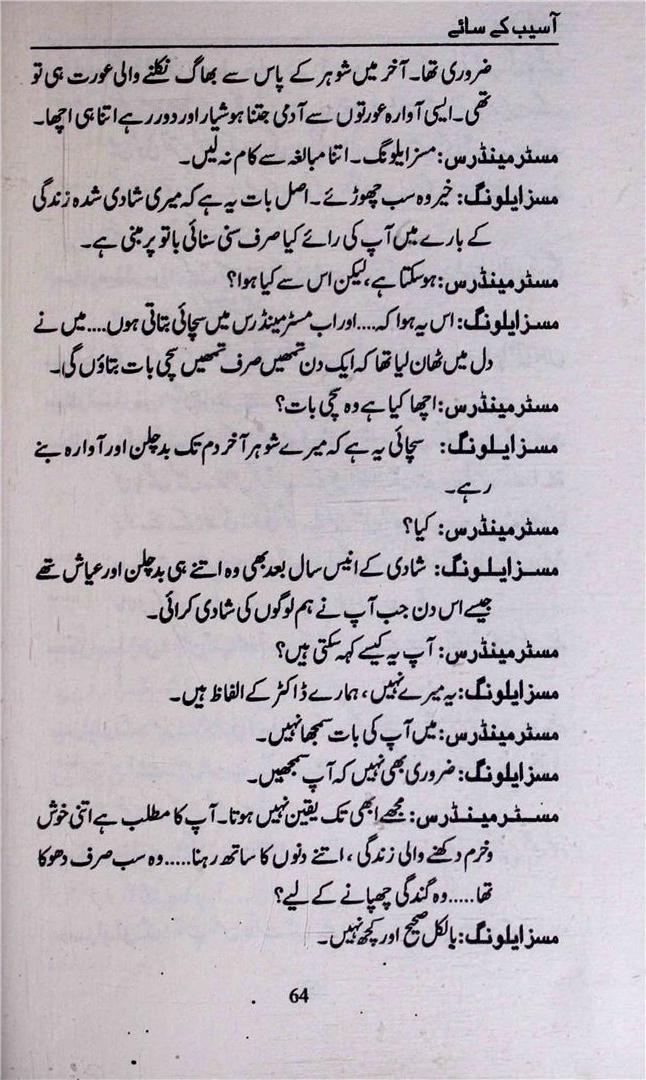 آسیب کے سائے
ضروری تھا۔ آخر میں شوہر کے پاس سے بھاگ نکلنے والی عورت ہی تو
تھی۔ ایسی آوارہ عورتوں سے آدمی جتنا ہوشیار اور دور رہے اتنا ہی اچھا۔
مسٹر مینڈرس: مسز ایلونگ۔ اتنا مبالغہ سے کام نہ لیں۔
مسز ایلونگ: خیر وہ سب چھوڑئے۔ اصل بات یہ ہے کہ میری شادی شدہ زندگی
کے بارے میں آپ کی رائے کیا صرف سنی سنائی باتو پر مبنی ہے۔
مسٹر مینڈرس: ہو سکتا ہے، لیکن اس سے کیا ہوا؟
مسز ایلونگ: اس یہ ہوا کہ.... اور اب مسٹر مینڈرس میں سچائی بتاتی ہوں.... میں نے
دل میں ٹھان لیا تھا کہ ایک دن تمھیں صرف تمھیں سچی بات بتاؤں گی۔
مسٹر مینڈرس: اچھا کیا ہے وہ سچی بات؟
مسز ایلونگ: سچائی یہ ہے کہ میرے شوہر آخر دم تک بدچلن اور آوارہ بنے
رہے۔
مسٹر مینڈرس: کیا؟
مسز ایلونگ: شادی کے انیس سال بعد بھی وہ اتنے ہی بدچلن اور عیاش تھے
جیسے اس دن جب آپ نے ہم لوگوں کی شادی کرائی۔
مسٹر مینڈرس: آپ یہ کیسے کہہ سکتی ہیں؟
مسز ایلونگ: یہ میرے نہیں، ہمارے ڈاکٹر کے الفاظ ہیں۔
مسٹر مینڈرس: میں آپ کی بات سمجھا نہیں۔
مسز ایلونگ: ضروری بھی نہیں کہ آپ سمجھیں۔
مسٹر مینڈرس: مجھے ابھی تک یقین نہیں ہوتا۔ آپ کا مطلب ہے اتنی خوش
وخرم دکھنے والی زندگی، اتنے دنوں کا ساتھ رہنا..... وہ سب صرف دھوکا
تھا..... وہ گندگی چھپانے کے لیے؟
مسز ایلونگ: بالکل صحیح اور کچھ نہیں۔
64